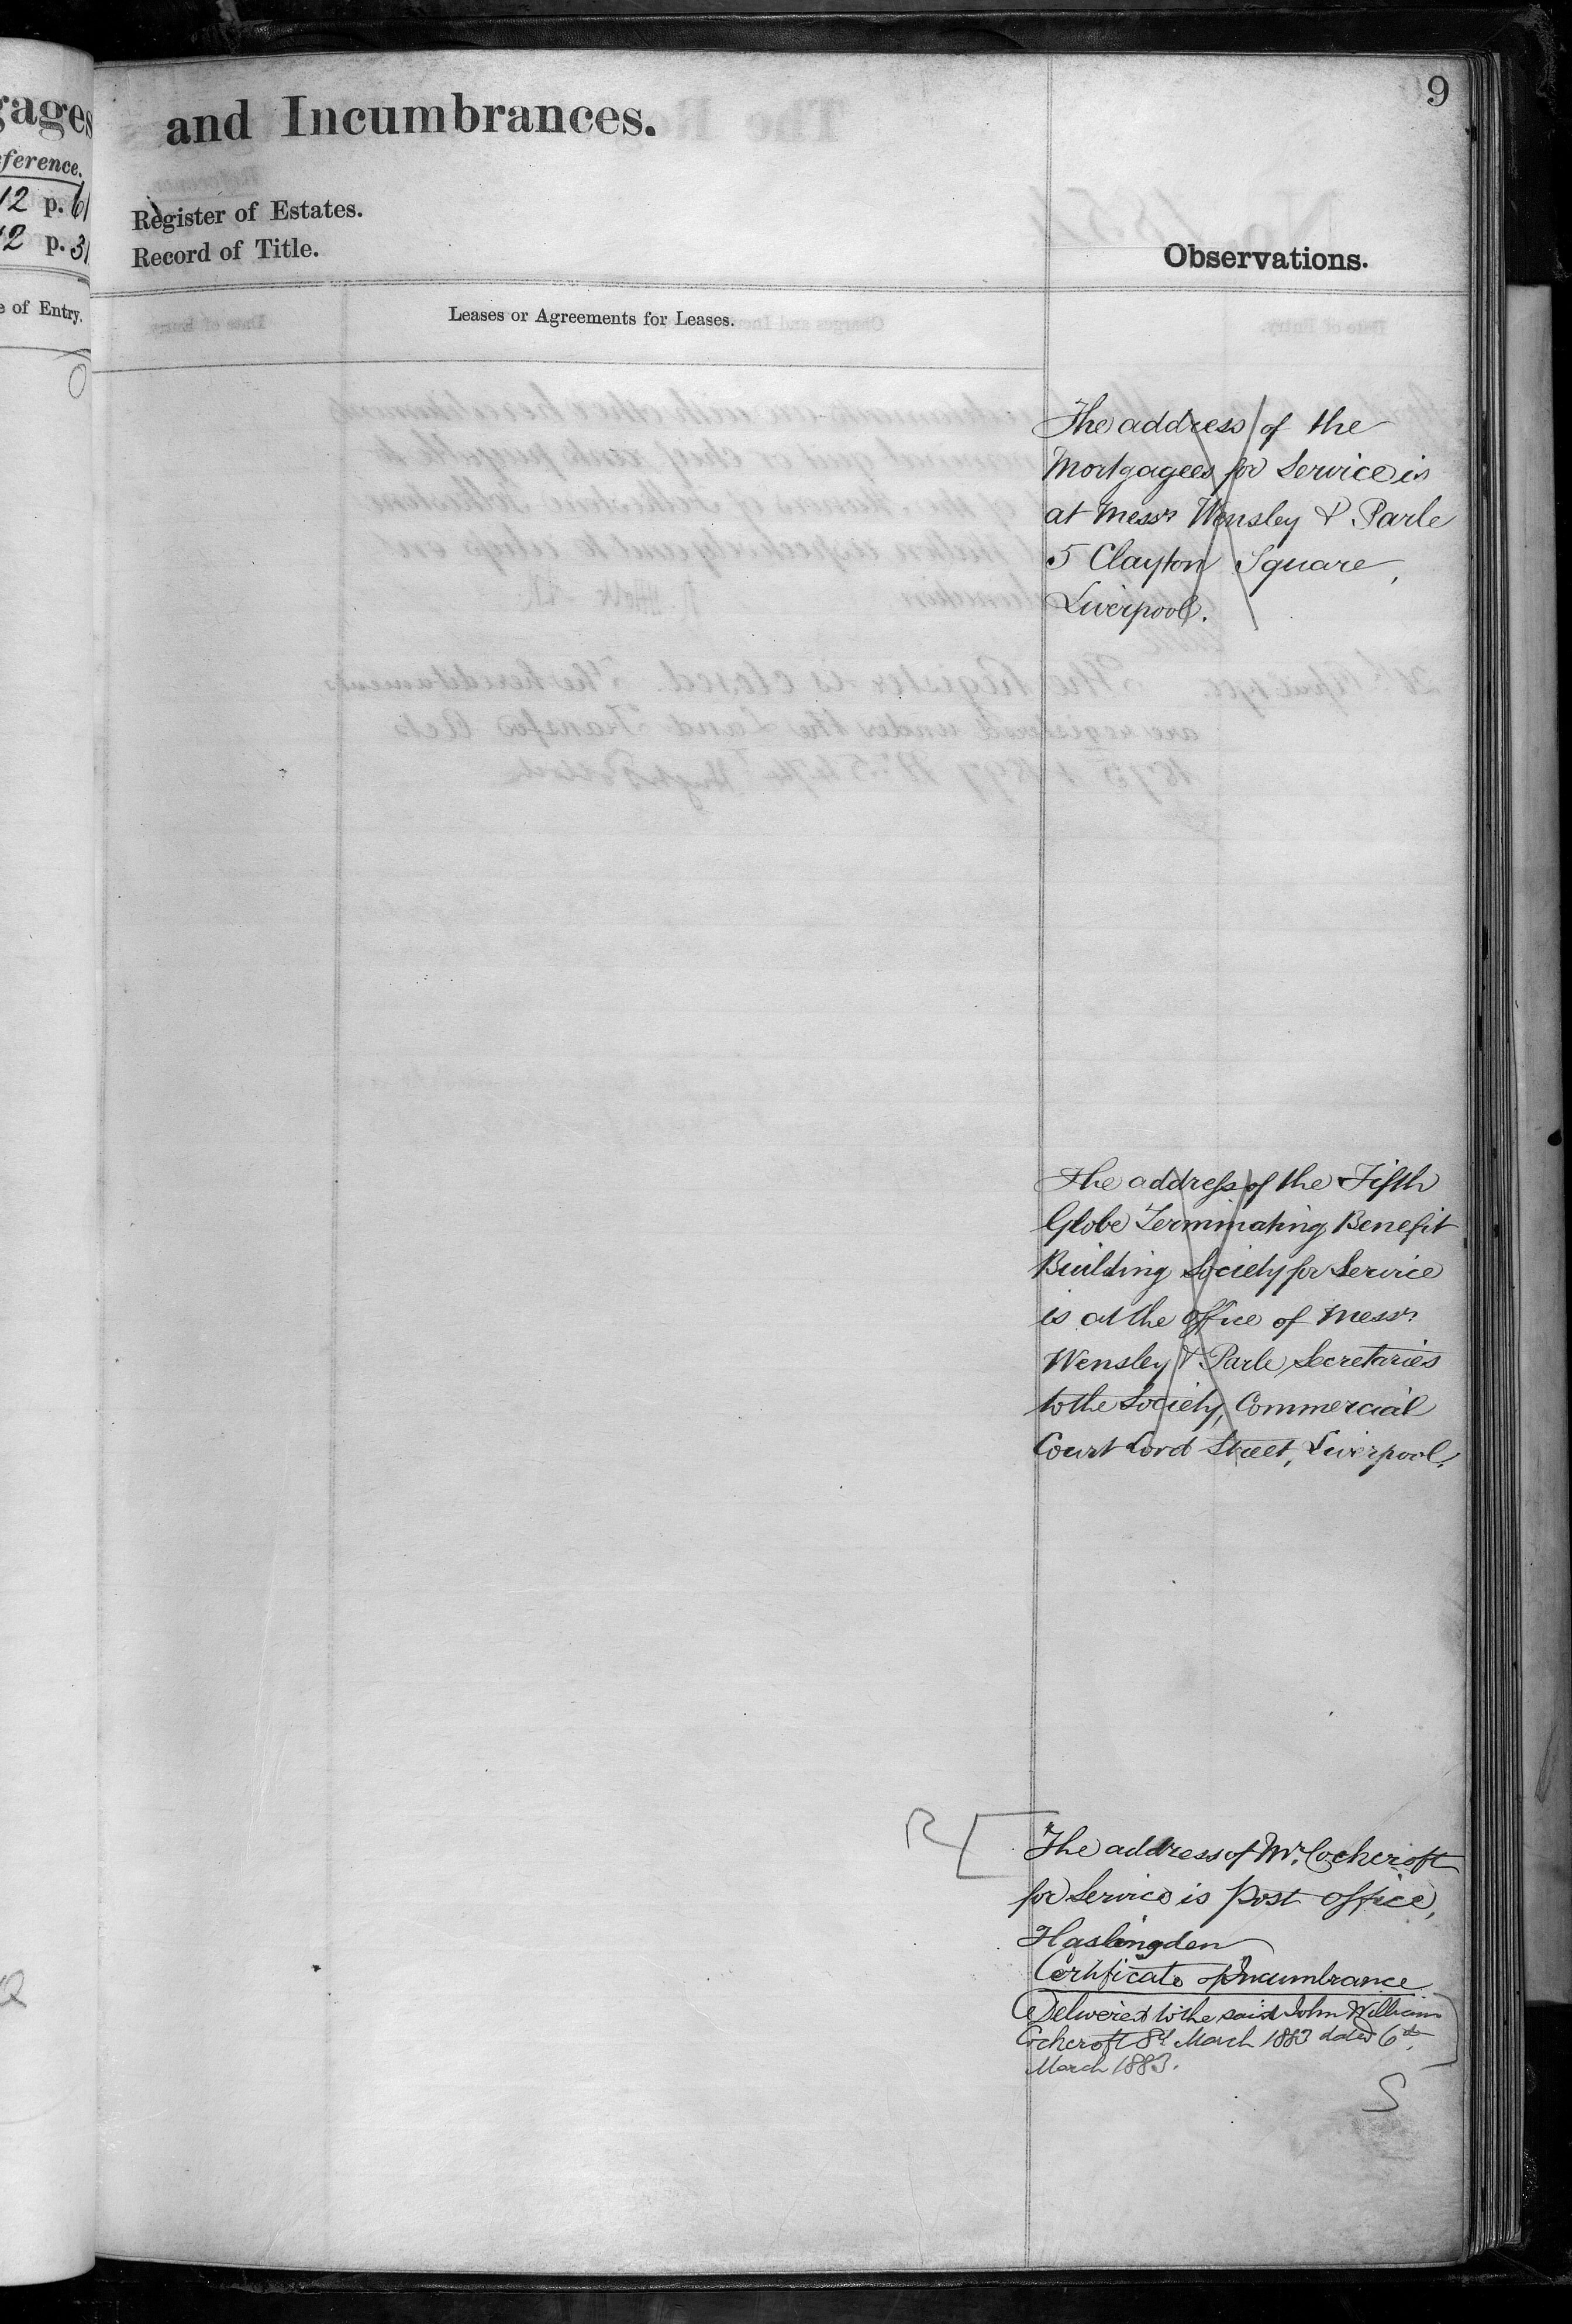 gages
ference.
12 p. 61
2 p. 31
e of Entry.
and Incumbrances.
9
Register of Estates.
Record of Title.
Observations.
Leases or Agreements for Leases.
The address of the
Mortgagees for Service is
at Messrs Wensley & Parle
5 Clayton Square,
Liverpool.
The address of the Fifth
Globe Terminating Benefit
Building Society for Service
is at the office of Messrs
Wensley & Parle Secretaries
to the Society, Commercial
Court Lord Street, Liverpool.
R
The address of Mr. Cockcroft
for Service is Post Office,
Haslingden
Certificate of Incumbrance
Delivered to the said John William
Cockcroft 8th March 1883 dated 6th
March 1883.
S